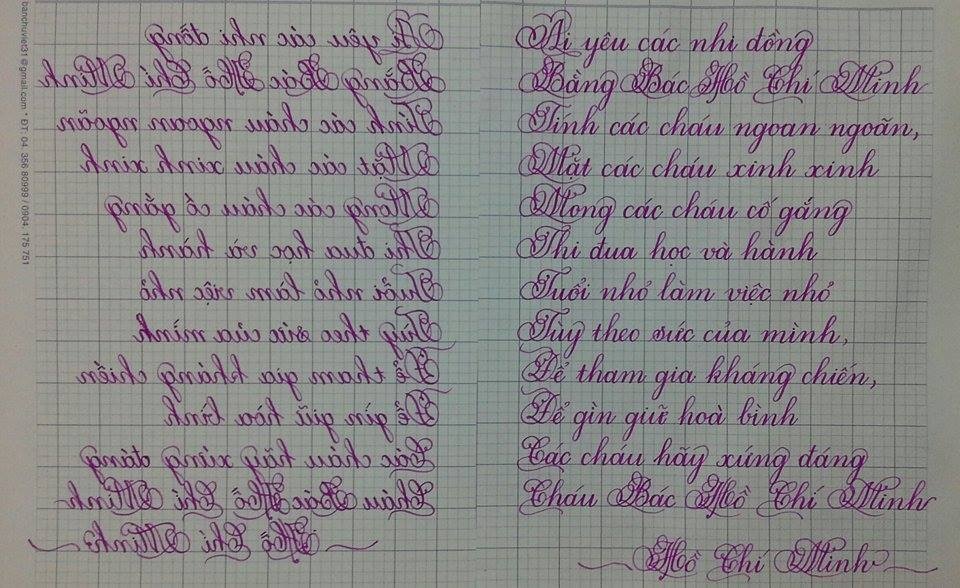 banchuviet31@gmail.com * ĐT: 04. 356 80999 / 0904. 175 751
Ai yêu các nhi đồng
Bằng Bác Hồ Chí Minh
Tính các cháu ngoan ngoãn
Mặt các cháu xinh xinh
Mong các cháu cố gắng
Thi đua học và hành
Tuổi nhỏ làm việc nhỏ
Tùy theo sức của mình
Để tham gia kháng chiến
Để gìn giữ hòa bình
Các cháu hãy xứng đáng
Cháu Bác Hồ Chí Minh
Hồ Chí Minh
Ai yêu các nhi đồng
Bằng Bác Hồ Chí Minh
Tính các cháu ngoan ngoãn,
Mặt các cháu xinh xinh
Mong các cháu cố gắng
Thi đua học và hành
Tuổi nhỏ làm việc nhỏ
Tùy theo sức của mình,
Để tham gia kháng chiến,
Để gìn giữ hoà bình
Các cháu hãy xứng đáng
Cháu Bác Hồ Chí Minh
Hồ Chí Minh